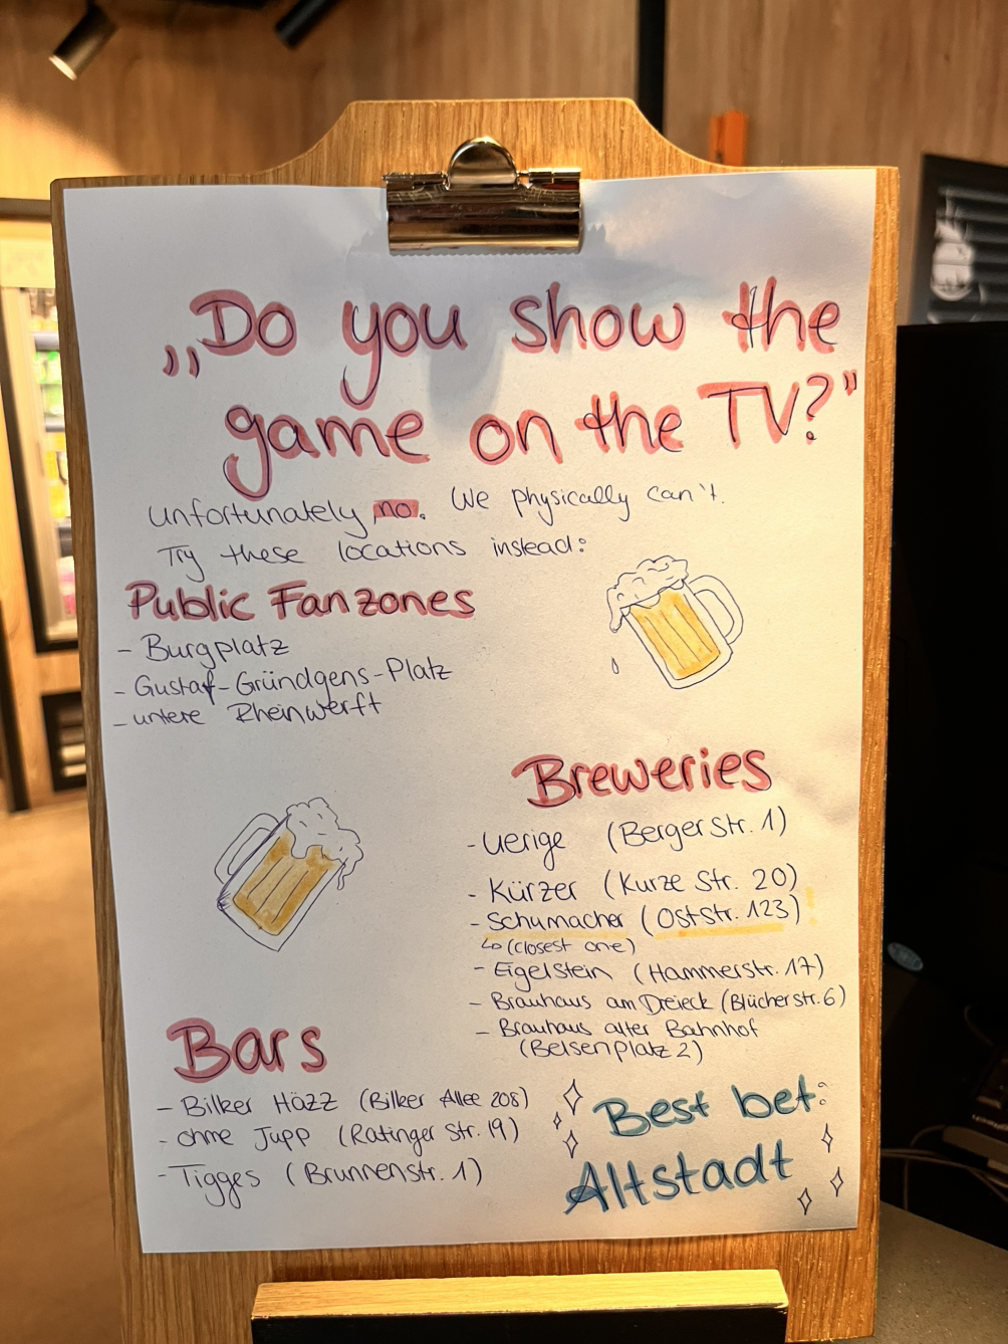 „Do you show the
game on the TV?"
unfortunately no. We physically can't.
Try these locations instead:
Public Fanzones
- Burgplatz
- Gustaf-Gründgens-Platz
- untere Rheinwerft
Breweries
- Uerige (Berger Str. 1)
- Kürzer (Kurze Str. 20)
- Schumacher (Oststr. 123)!
↳ (closest one)
- Eigelstein (Hammerstr. 17)
- Brauhaus am Dreieck (Blücherstr. 6)
- Brauhaus alter Bahnhof
(Belsenplatz 2)
Bars
- Bilker Häzz (Bilker Allee 208)
- ohme Jupp (Ratinger Str. 19)
- Tigges (Brunnenstr. 1)
Best bet:
Altstadt